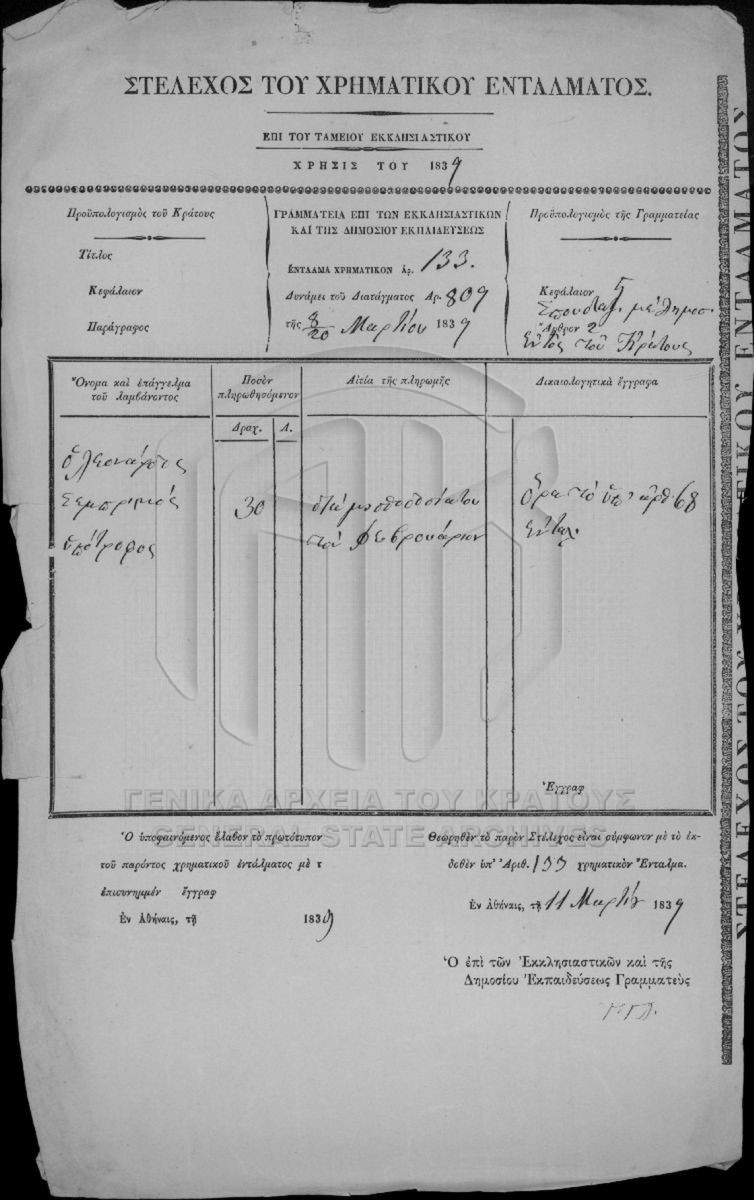 ΣΤΕΛΕΧΟΣ ΤΟΥ ΧΡΗΜΑΤΙΚΟΥ ΕΝΤΑΛΜΑΤΟΣ.
ΕΠΙ ΤΟΥ ΤΑΜΕΙΟΥ ΕΚΚΛΗΣΙΑΣΤΙΚΟΥ
ΧΡΗΣΙΣ ΤΟΥ 1839
Προϋπολογισμὸς τοῦ Κράτους
Τίτλος
Κεφάλαιον
Παράγραφος
ΓΡΑΜΜΑΤΕΙΑ ΕΠΙ ΤΩΝ ΕΚΚΛΗΣΙΑΣΤΙΚΩΝ
ΚΑΙ ΤΗΣ ΔΗΜΟΣΙΟΥ ΕΚΠΑΙΔΕΥΣΕΩΣ
ΕΝΤΑΛΜΑ ΧΡΗΜΑΤΙΚΟΝ ΑΡ. 133.
Δυνάμει τοῦ Διατάγματος Αρ. 809
τῆς 8/20 Μαρτίου 1839
Προϋπολογισμὸς τῆς Γραμματείας
Κεφάλαιον 5
Ἄρθρον 2
Ἐντὸς τοῦ Κράτους
Ὄνομα καὶ ἐπάγγελμα
τοῦ λαμβάνοντος
Ποσὸν
πληρωθησόμενον
Δραχ. Λ.
Αἰτία τῆς πληρωμῆς
Δικαιολογητικὰ ἔγγραφα
ὑπότροφος
30
διὰ
τὸν Φεβρουάριον
Ὅρα τὸ ὑπ' ἀρθ 68
Ἐντ.
Ἐγγραφ
ΓΕΝΙΚΑ ΑΡΧΕΙΑ ΤΟΥ ΚΡΑΤΟΥΣ
GENERAL STATE ARCHIVES
Ὁ ὑποφαινόμενος ἔλαβον τὸ πρωτότυπον
τοῦ παρόντος χρηματικοῦ ἐντάλματος μὲ τ
ἐπισυνημμέν ἔγγραφ
Ἐν Ἀθήναις, τῇ 1839
Θεωρηθὲν τὸ παρὸν Στέλεχος εἶναι σύμφωνον μὲ τὸ ἐκ-
δοθὲν ὑπ' Ἀριθ. 133 χρηματικὸν Ἔνταλμα.
Ἐν Ἀθήναις, τῇ 11 Μαρτίου 1839
Ὁ ἐπὶ τῶν Ἐκκλησιαστικῶν καὶ τῆς
Δημοσίου Ἐκπαιδεύσεως Γραμματεὺς